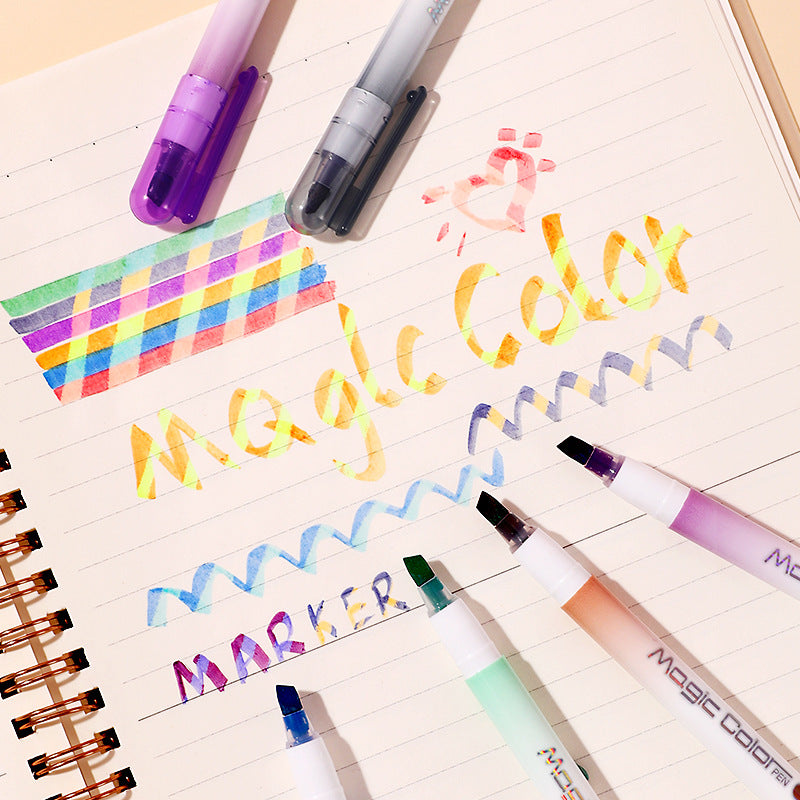 Magic Color
MARKER
Ma
Magic Color PEN
Mag